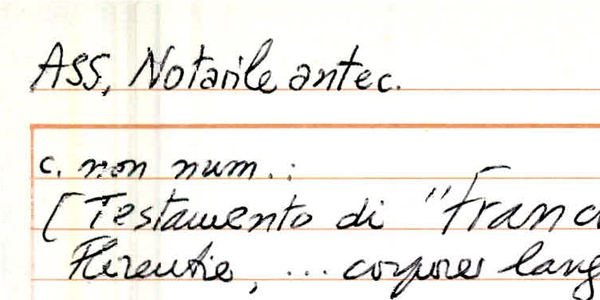 Ass, Notarile antec.
c. non num.:
[Testamento di "Franc
Florentie, ... corpore lang